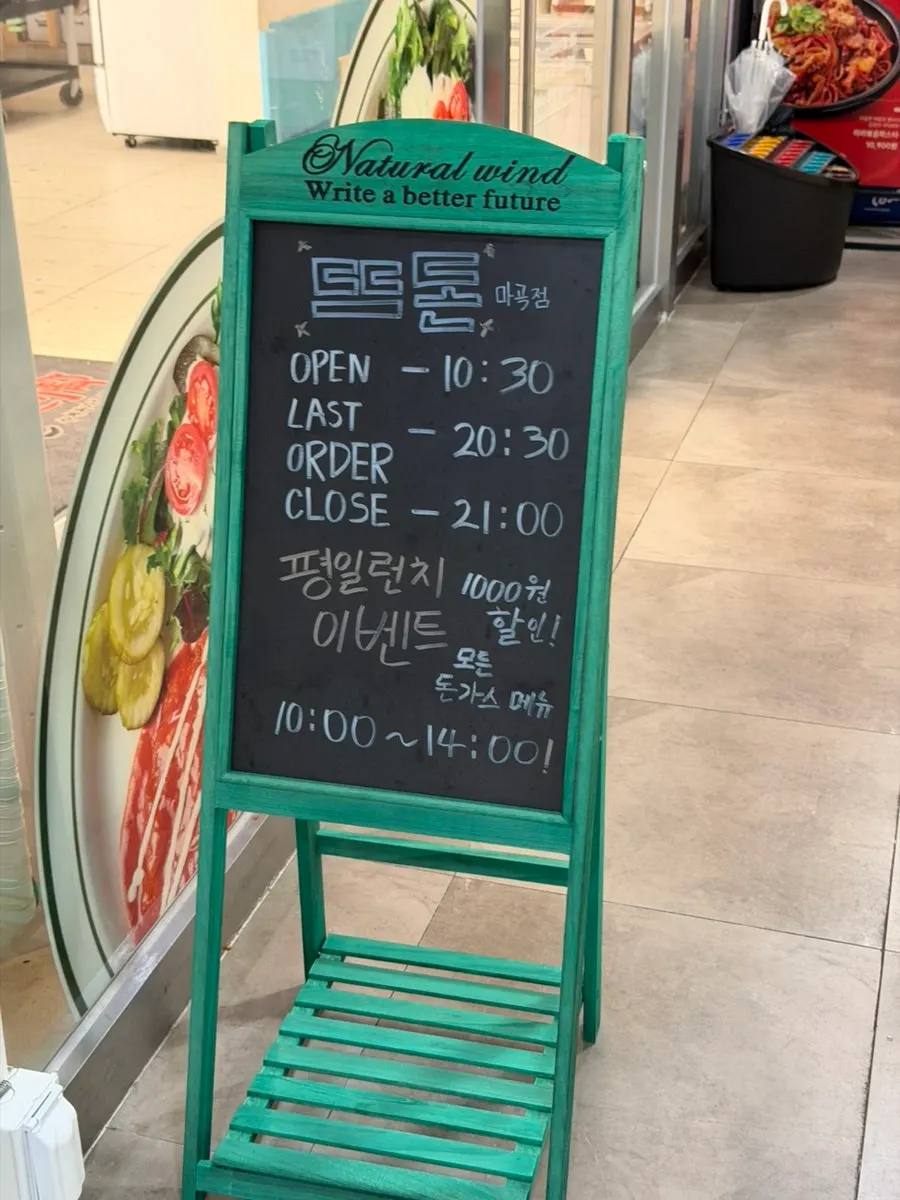 Natural wind
Write a better future
뜨돈 마곡점
OPEN - 10:30
LAST
ORDER - 20:30
CLOSE - 21:00
평일런치 1000원
이벤트 할인!
모든
돈가스 메뉴
10:00~14:00!
10,900원